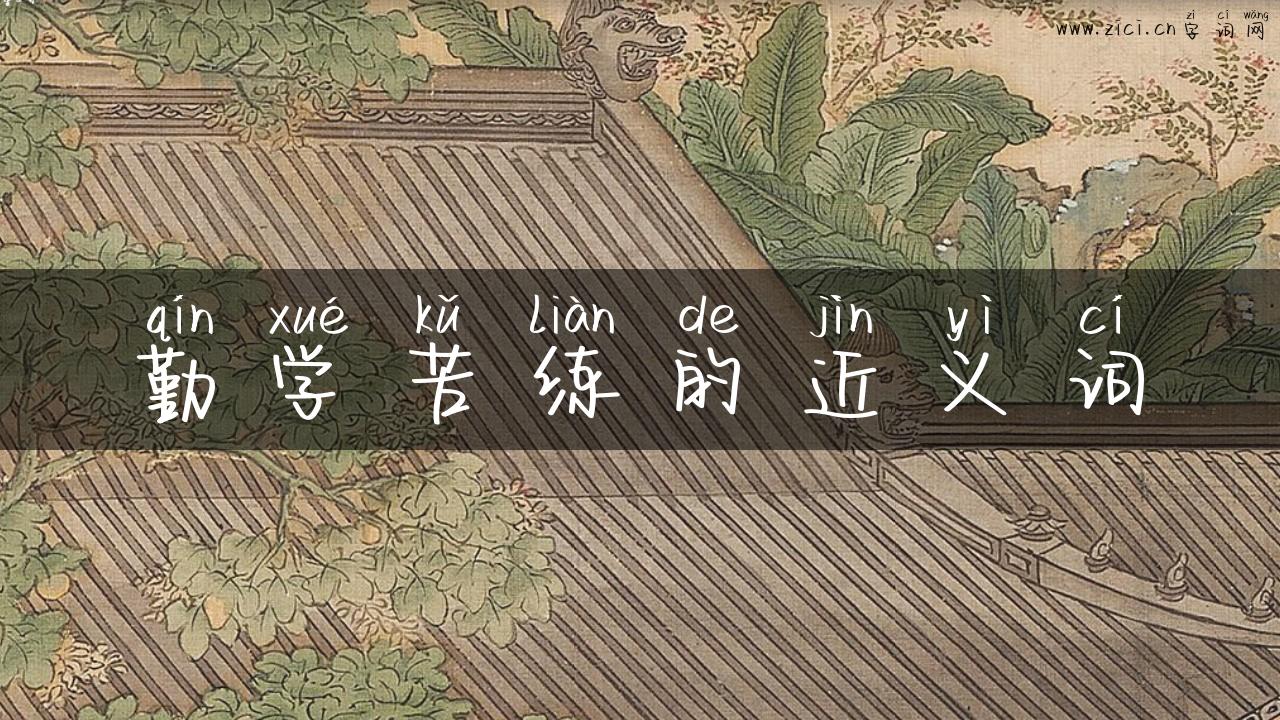 zì cí wǎng
www.zici.cn 字 词 网
qín xué kǔ liàn de jìn yì cí
勤 学 苦 练 的 近 义 词